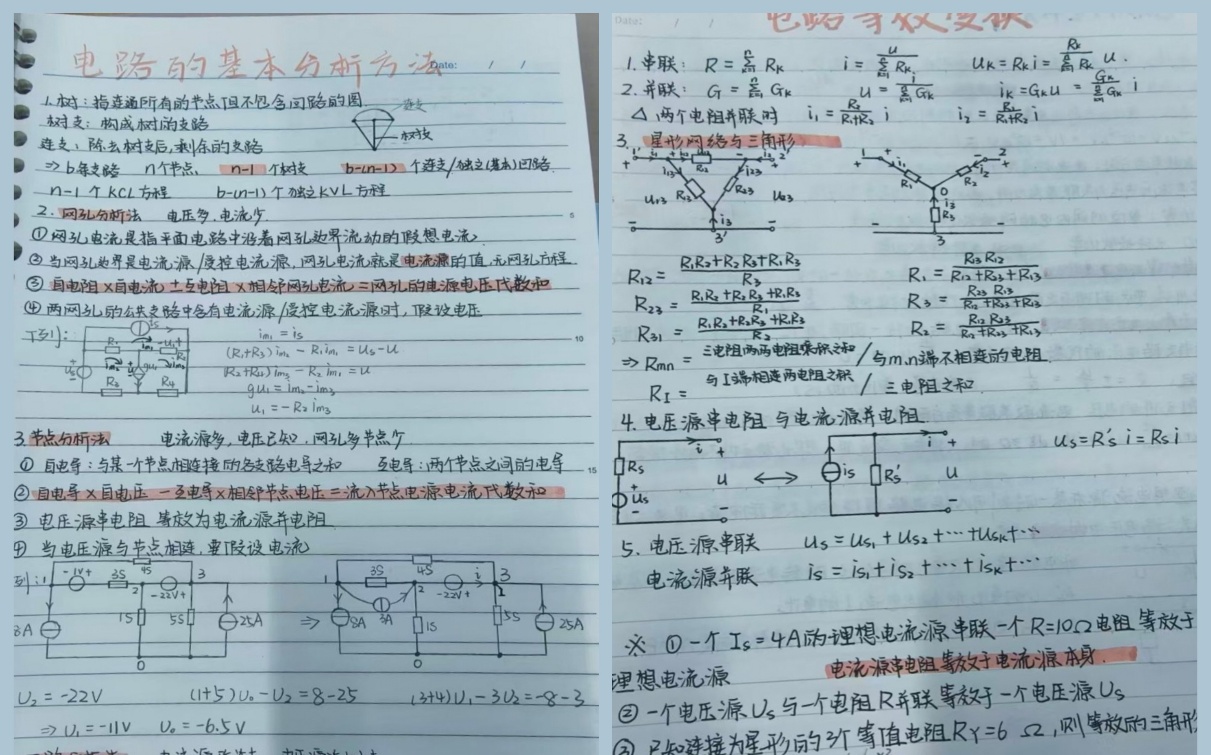 电路的基本分析方法
Date: / /
1.树：指连通所有的节点但不包含回路的图.
树支：构成树的支路
连支：除去树支后,剩余的支路
连支
树枝
⇒ b条支路 n个节点, n-1 个树枝 b-(n-1) 个连支/独立(基本)回路.
n-1 个 KCL方程 b-(n-1) 个独立KVL方程
2. 网孔分析法 电压多,电流少.
① 网孔电流是指平面电路中沿着网孔边界流动的假想电流
② 当网孔边界是电流源/受控电流源,网孔电流就是电流源的值,无网孔方程
③ 自电阻×自电流 ±互电阻×相邻网孔电流=网孔的电源电压代数和
④ 两网孔的公共支路中含有电流源/受控电流源时,假设电压
im₁ = is
(R₁+R₃)im₂ - R₁im₁ = us-u
(R₂+R₄)im₃ - R₂im₁ = u
gu₁ = im₂-im₃
u₁ = -R₂im₃
3.节点分析法 电流源多,电压已知,网孔多节点少
① 自电导:与某一个节点相连接的各支路电导之和 互电导:两个节点之间的电导
② 自电导×自电压 -互电导×相邻节点电压=流入节点电源电流代数和
③ 电压源串电阻 等效为电流源并电阻
④ 当电压源与节点相连,要假设电流
1 -1V+ 3S 2 4S -22V+ 3
8A 1S 5S 25A
0
⇒
1 3S 4S 2 -22V+ i 3
8A 3A 1S 5S 25A
0
U₂ = -22V (1+5)U₀-U₂=8-25 (3+4)U₁-3U₂=-8-3
⇒ U₁=-11V U₀=-6.5V
Date: / /
电路等效变换
1.串联: R=Σ(k=1→n) Rk i=u/ΣRk uk=Rki=Rk/ΣRk u.
2.并联: G=Σ(k=1→n) Gk u=i/ΣGk ik=Gku=Gk/ΣGk i
△ 两个电阻并联时 i₁=R₂/(R₁+R₂) i i₂=R₁/(R₁+R₂) i
3. 星形网络与三角形
R₁₂=(R₁R₂+R₂R₃+R₁R₃)/R₃ R₁=R₁₃R₁₂/(R₁₂+R₂₃+R₁₃)
R₂₃=(R₁R₂+R₂R₃+R₁R₃)/R₁ R₃=R₂₃R₁₃/(R₁₂+R₂₃+R₁₃)
R₃₁=(R₁R₂+R₂R₃+R₁R₃)/R₂ R₂=R₁₂R₂₃/(R₁₂+R₂₃+R₁₃)
⇒ Rmn=三电阻两两电阻乘积之和/与m,n端不相连的电阻
RI=与I端相连两电阻之积/三电阻之和
4.电压源串电阻与电流源并电阻
Rs us i + u - ⟷ is Rs′ i + u - us=R′s i=Rs i
5.电压源串联 us=us₁+us₂+⋯+usk+⋯
电流源并联 is=is₁+is₂+⋯+isk+⋯
※ ①一个 Is=4A的理想电流源串联一个R=10Ω电阻等效于
理想电流源 电流源串电阻等效于电流源本身.
② 一个电压源Us与一个电阻R并联等效于一个电压源Us
③ 已知连接为星形的3个等值电阻RY=6 Ω,则等效的三角形